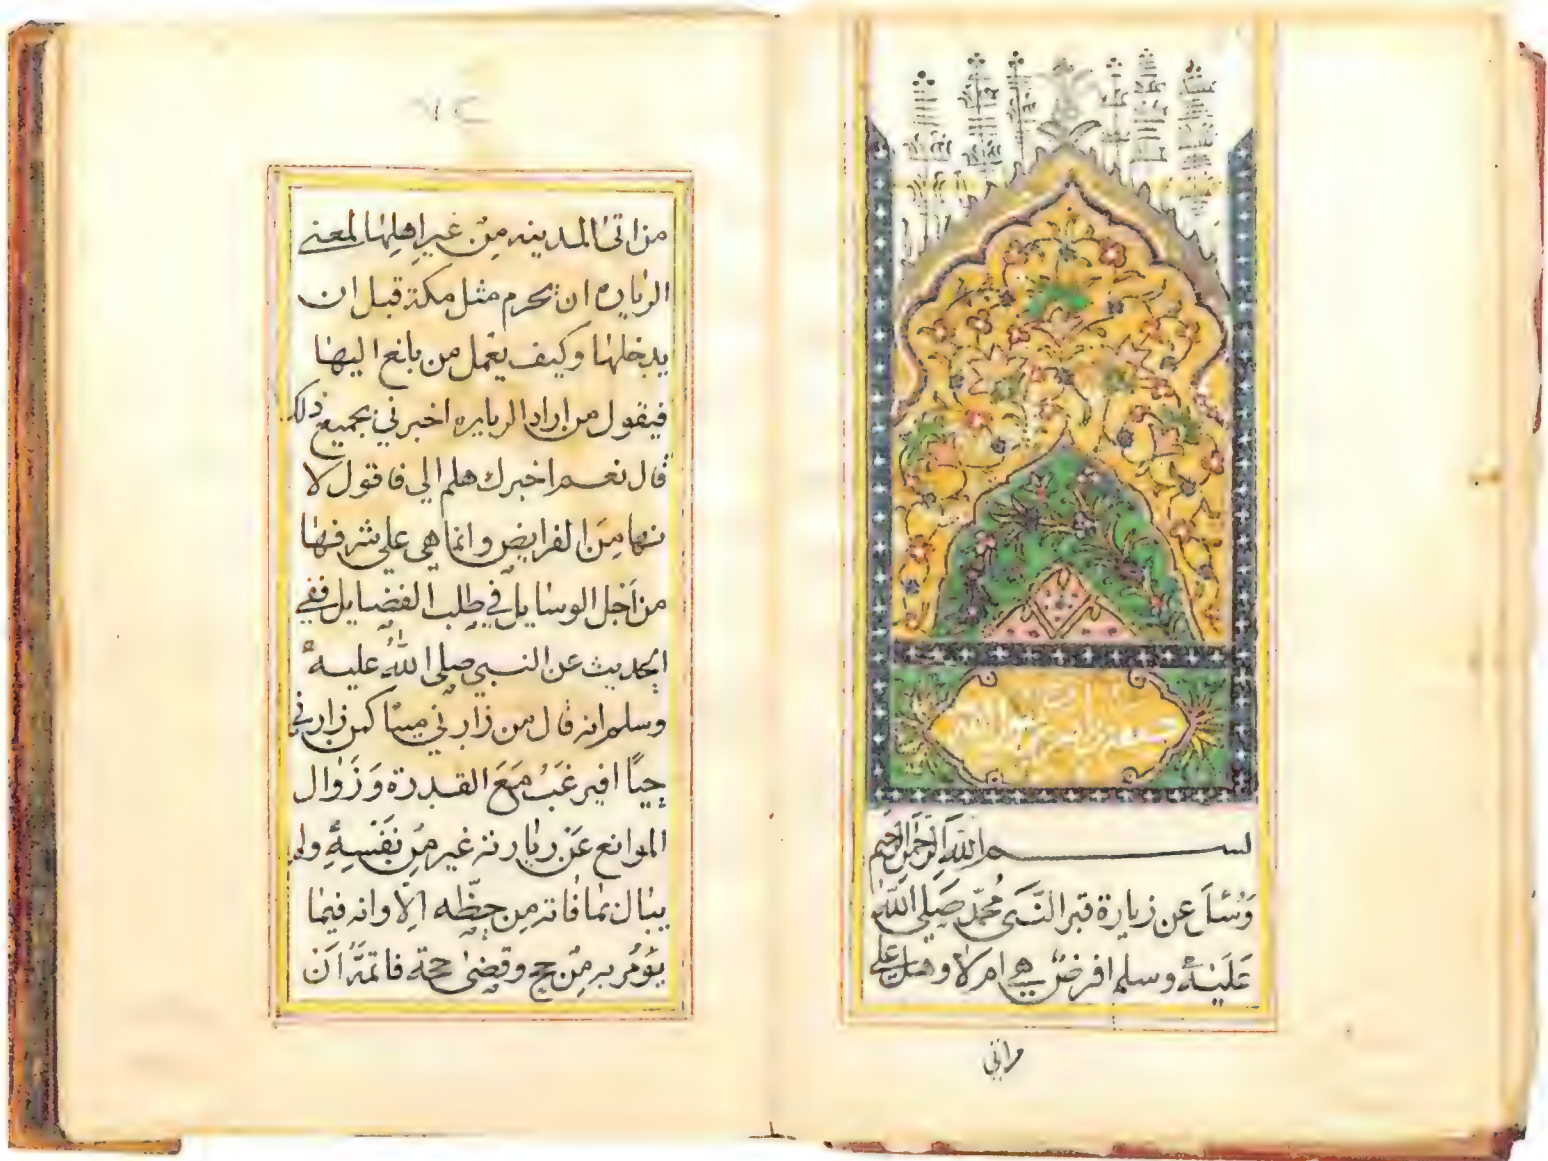 بسم الله الرحمن الرحيم
وسئل عن زيارة قبر النبي محمد صلى الله
عليه وسلم افرض هي ام لا وهل على
من اتى المدينه مِن غير اهلها لمعنى
الزياره ان يحرم مثل مكة قبل ان
يدخلها وكيف يعمل من بلغ اليها
فيقول من اراد الزياره اخبرني بجميع ذلك
قال نعم اخبرك هلم الي فاقول لا
نها مِنَ الفرايض وانما هي على شرفها
من اَجل الوسايل في طلب الفضايل ففي
الحديث عن النبي صلى اللهُ عليه
وسلم انه قال من زارني ميتا كمن زارني
حيًا افيرغَبُ مَعَ القدرة وَزَوال
الموانع عَن زيارته غير مِن نَفْسِهِ ولم
يبال بما فاته مِن حظّه الا وانه فيما
يؤمُر به مِن حج وقضى حجة فاتمةَ اَن